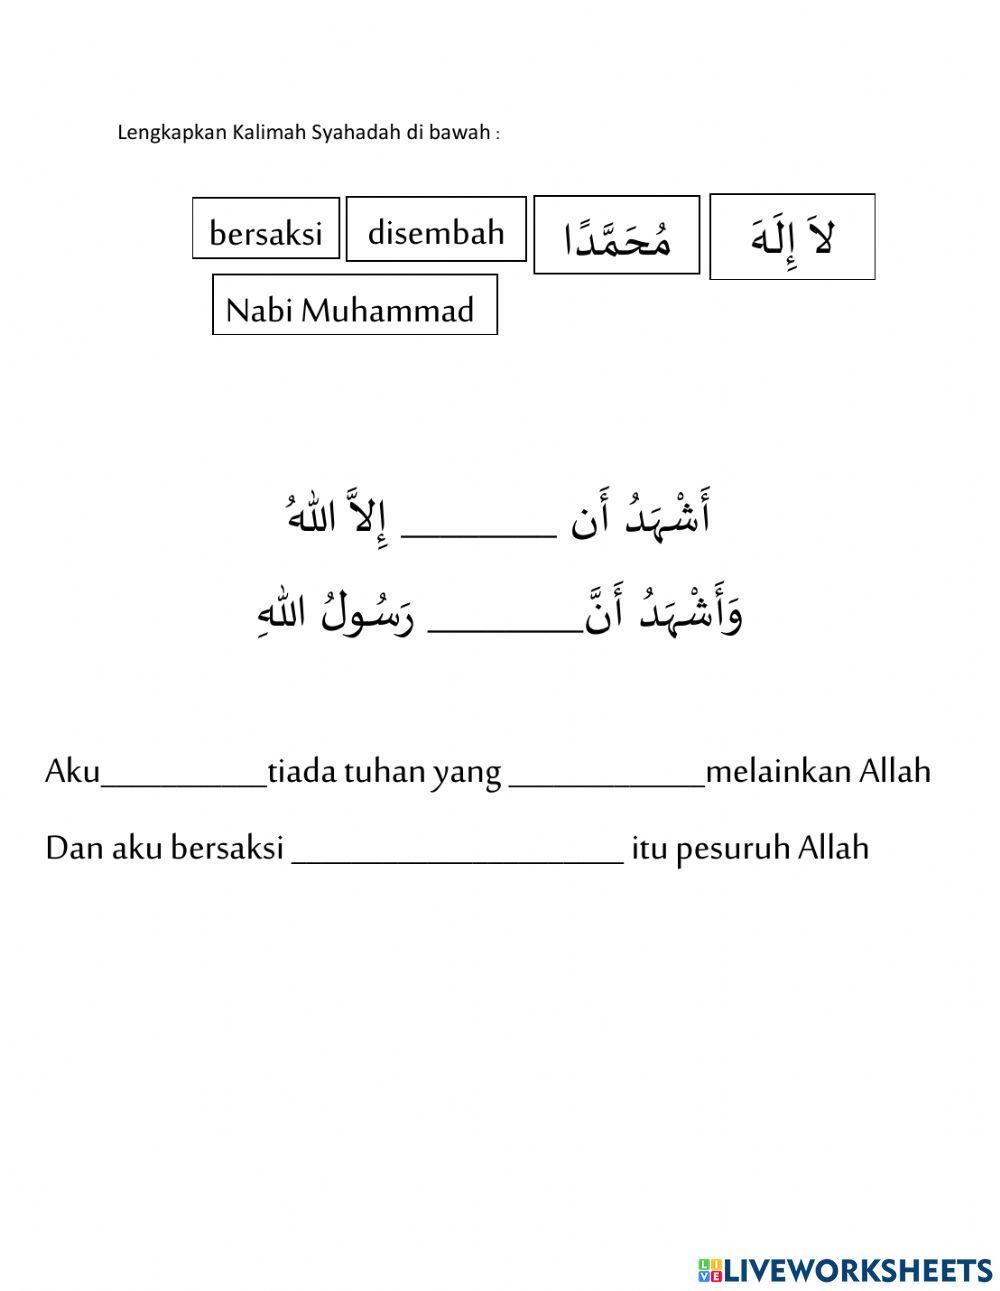 Lengkapkan Kalimah Syahadah di bawah :
bersaksi disembah مُحَمَّدًا لاَ إِلَهَ
Nabi Muhammad
أَشْهَدُ أَن ________ إِلاَّ اللهُ
وَأَشْهَدُ أَنَّ________ رَسُولُ اللهِ
Aku__________tiada tuhan yang ____________melainkan Allah
Dan aku bersaksi ____________________ itu pesuruh Allah
LIVE LIVEWORKSHEETS